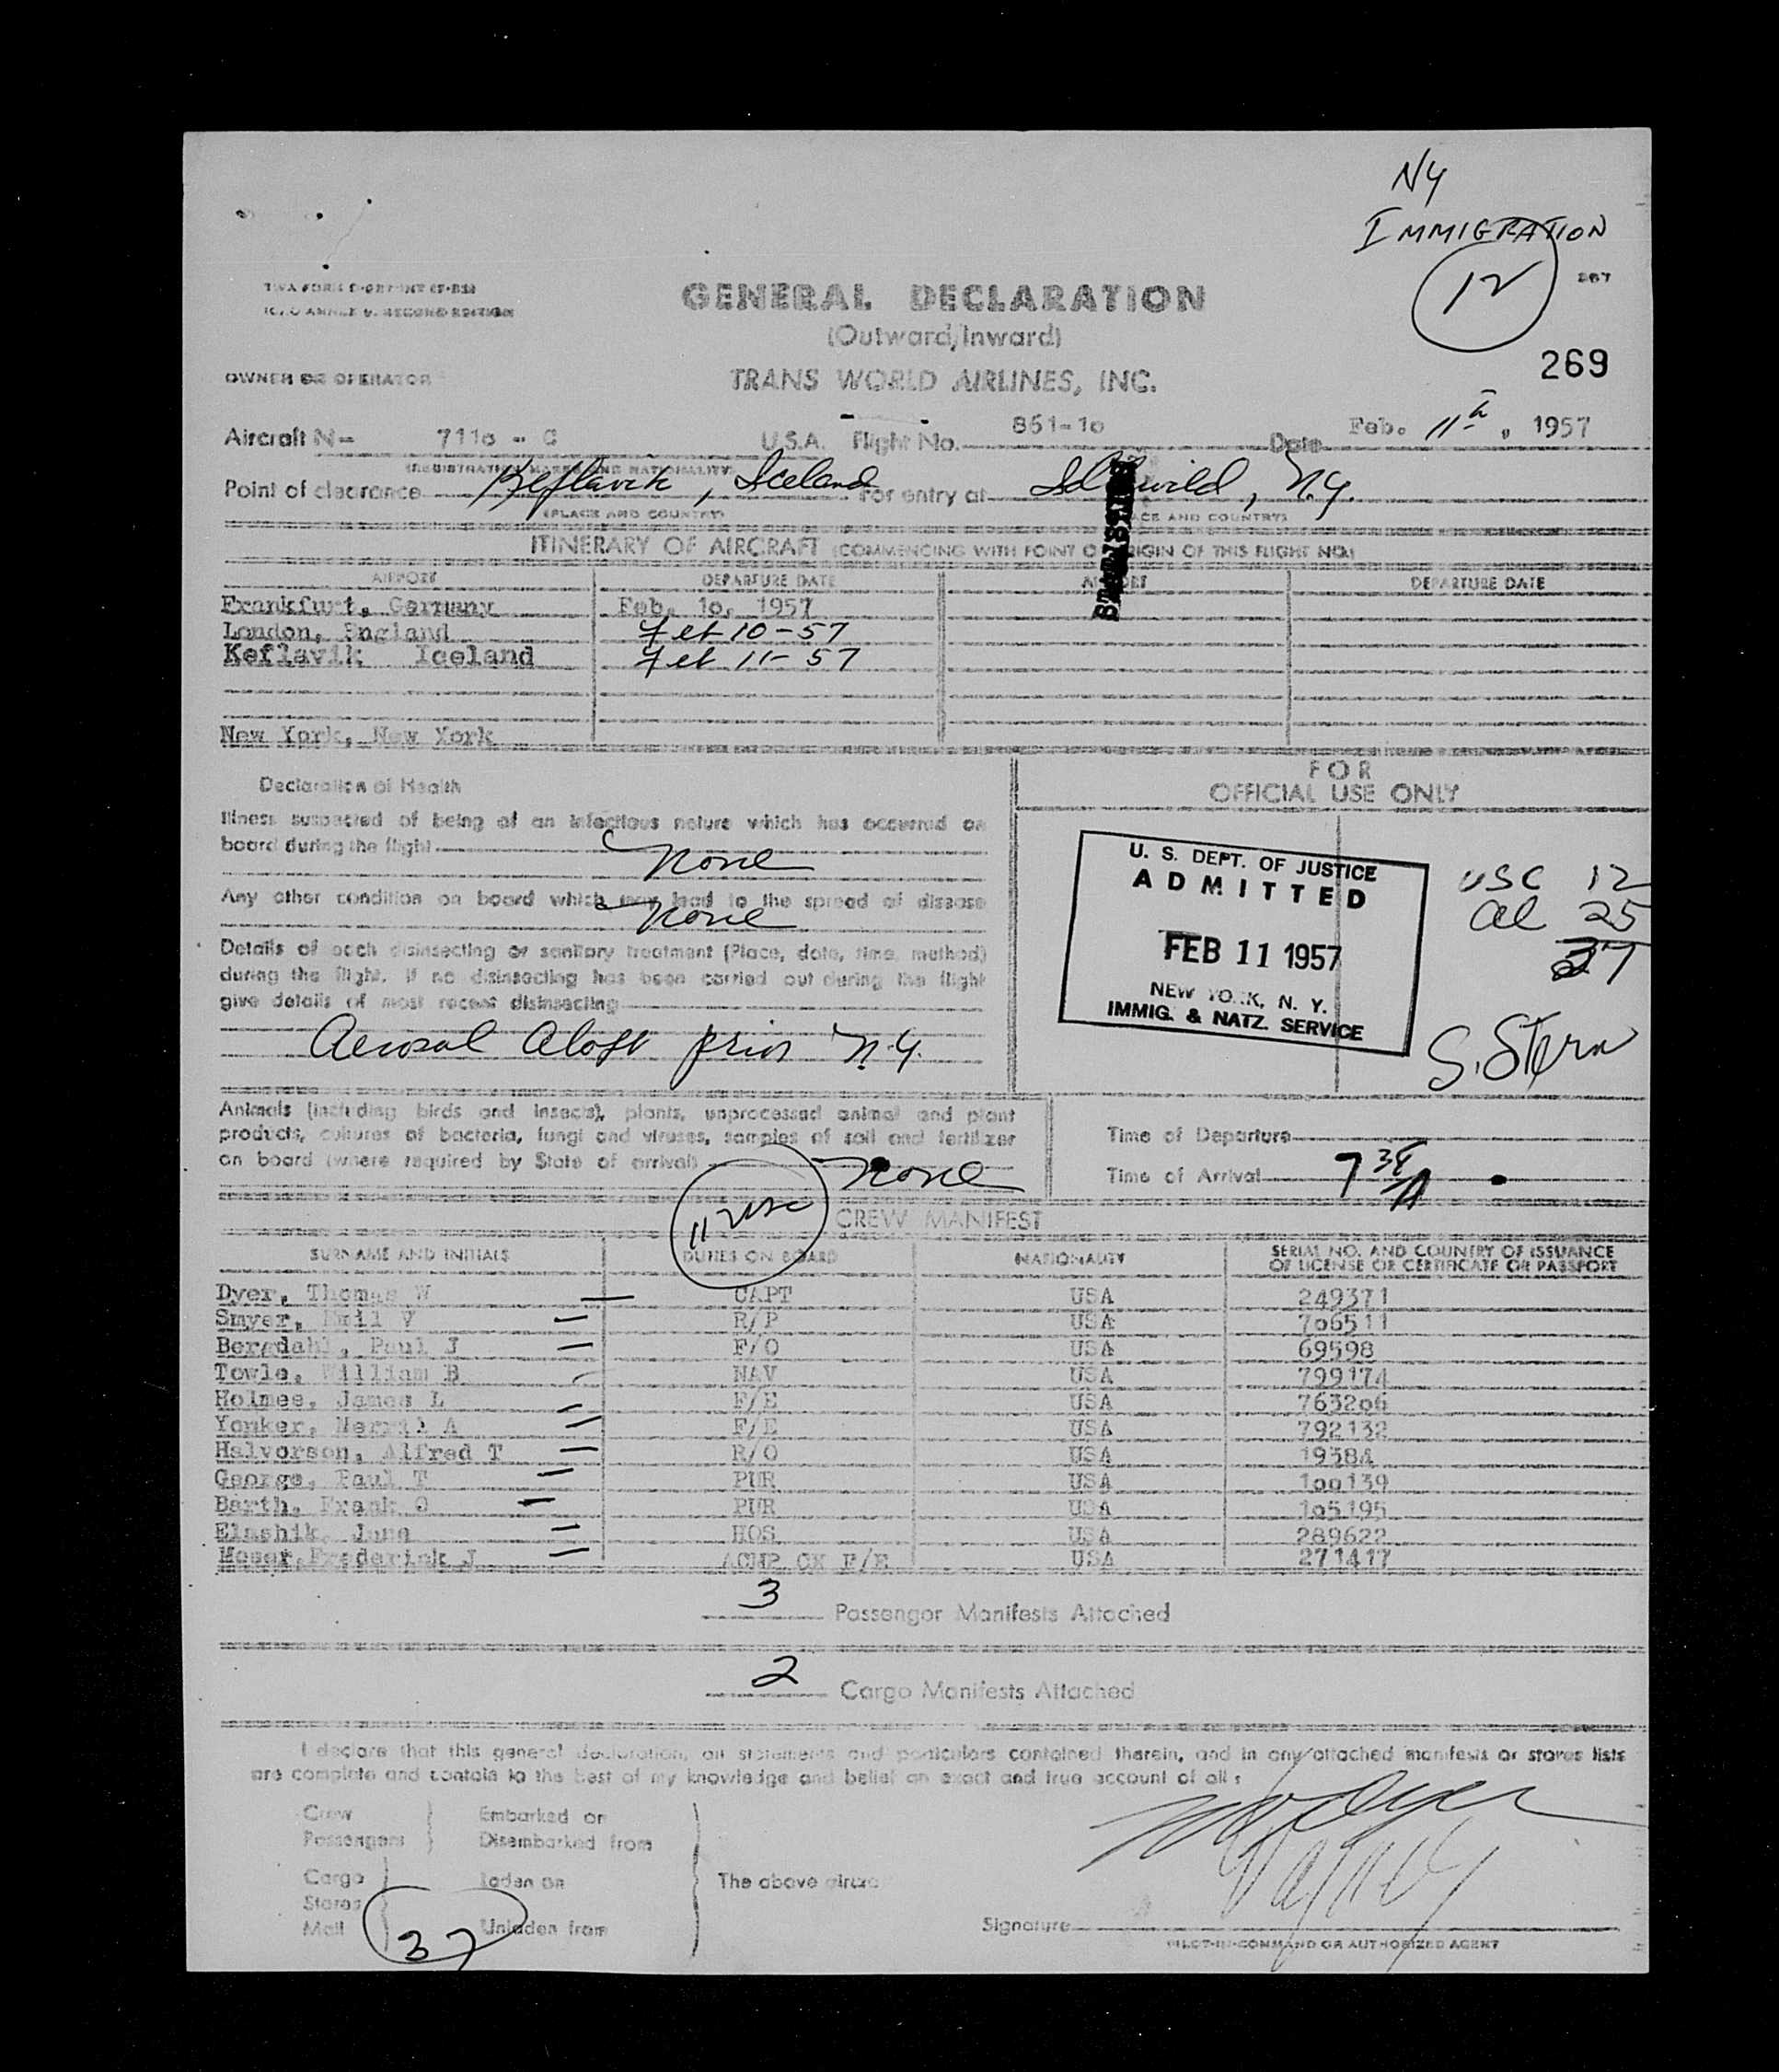 NY
IMMIGRATION
12
267
GENERAL DECLARATION
(Outward/Inward)
269
OWNER OR OPERATOR
TRANS WORLD AIRLINES, INC.
Aircraft N- 711o - C U.S.A. Flight No. 861-1o Date Feb. 11th, 1957
(REGISTRATION MARKS AND NATIONALITY)
Point of clearance Keflavik, Iceland For entry at Idlewild, N.Y.
(PLACE AND COUNTRY) PLACE AND COUNTRY)
ITINERARY OF AIRCRAFT (COMMENCING WITH POINT OF ORIGIN OF THIS FLIGHT NO.)
AIRPORT DEPARTURE DATE AIRPORT DEPARTURE DATE
Frankfurt, Germany Feb. 1o, 1957
London, England Feb 10-57
Keflavik Iceland Feb 11-57
New York, New York
FOR
OFFICIAL USE ONLY
Declaration of Health
Illness suspected of being of an infectious nature which has occurred on
board during the flight
None
Any other condition on board which may lead to the spread of disease
None
Details of each disinsecting or sanitary treatment (Place, date, time, method)
during the flight. If no disinsecting has been carried out during the flight
give details of most recent disinsecting
Aerosol Aloft prior N.Y.
U. S. DEPT. OF JUSTICE
ADMITTED
FEB 11 1957
NEW YORK, N. Y.
IMMIG. & NATZ. SERVICE
USC 12
al 25
37
S. Stern
Animals (including birds and insects), plants, unprocessed animal and plant
products, cultures of bacteria, fungi and viruses, samples of soil and fertilizer
on board (where required by State of arrival)
None
Time of Departure
Time of Arrival 7
11 USC
CREW MANIFEST
SURNAME AND INITIALS DUTIES ON BOARD NATIONALITY SERIAL NO. AND COUNTRY OF ISSUANCE
OF LICENSE OR CERTIFICATE OR PASSPORT
Dyer, Thomas W CAPT USA 249371
Smyer, Emil V R/P USA 7o6511
Bergdahl, Paul J F/O USA 69598
Towle, William B NAV USA 799174
Holmes, James L F/E USA 7632o6
Yonker, Merril A F/E USA 792132
Halvorson, Alfred T R/O USA 1938A
George, Paul T PUR USA 1oo139
Barth, Frank O PUR USA 1o5195
Elashik, June HOS USA 289622
Moser, Frederick J ACMR CK F/E USA 271417
3 Passenger Manifests Attached
2 Cargo Manifests Attached
I declare that this general declaration, all statements and particulars contained therein, and in any attached manifests or stores lists
are complete and contain to the best of my knowledge and belief an exact and true account of all :
Crew Embarked on
Passengers Disembarked from
Cargo Laden on The above aircraft
Stores
Mail Unladen from
37
Signature
PILOT-IN-COMMAND OR AUTHORIZED AGENT